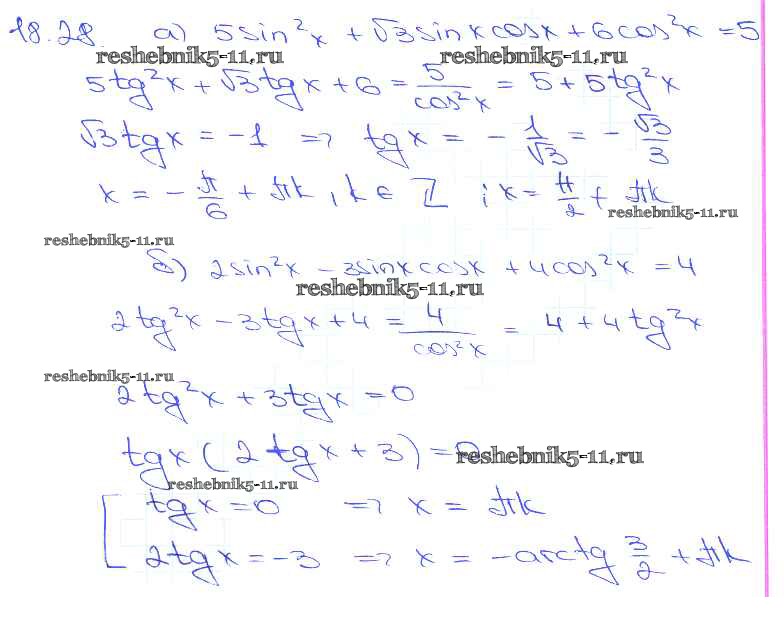 18.28. а) 5sin²x + √3sinxcosx + 6cos²x = 5
reshebnik5-11.ru reshebnik5-11.ru
5tg²x + √3tgx + 6 = 5/cos²x = 5 + 5tg²x
√3tgx = -1 => tgx = - 1/√3 = - √3/3
x = - π/6 + πk, k ∈ Z ; x = π/2 + πk
reshebnik5-11.ru
reshebnik5-11.ru
б) 2sin²x - 3sinxcosx + 4cos²x = 4
reshebnik5-11.ru
2tg²x - 3tgx + 4 = 4/cos²x = 4 + 4tg²x
reshebnik5-11.ru
2tg²x + 3tgx = 0
tgx(2tgx + 3) = 0
reshebnik5-11.ru
reshebnik5-11.ru
[ tgx = 0 => x = πk
2tgx = -3 => x = -arctg 3/2 + πk